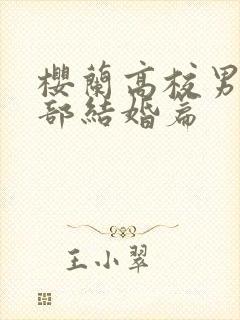 櫻蘭高校男
部結婚篇
王小翠